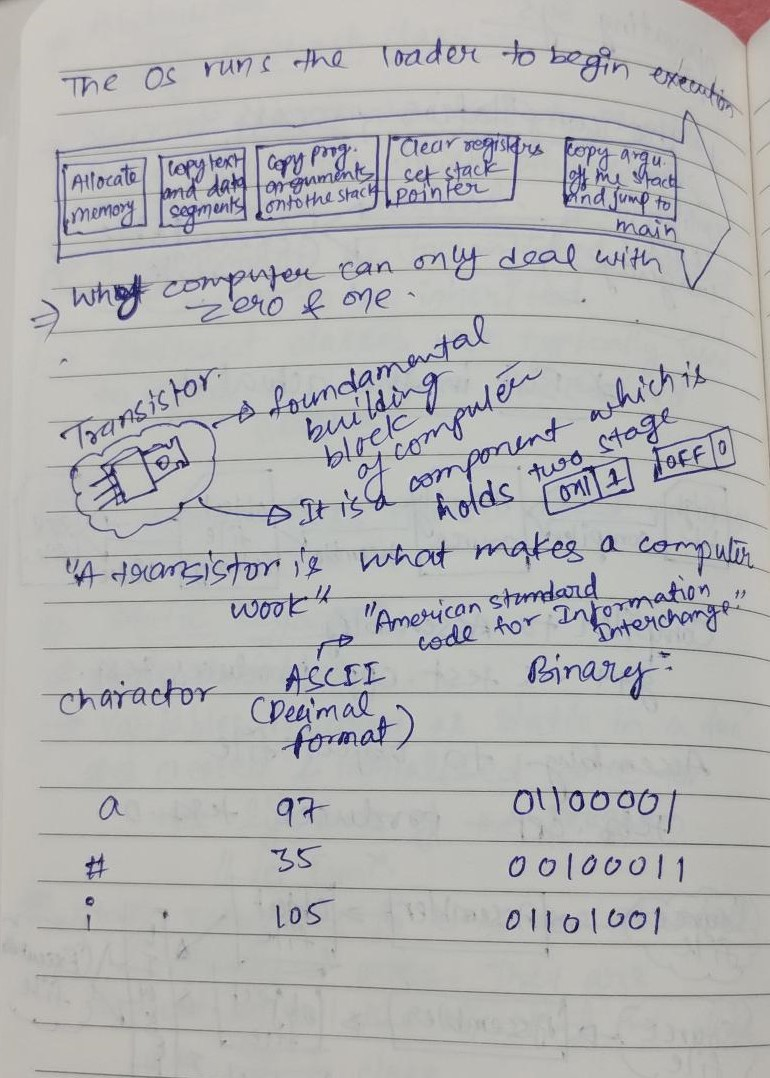 The OS runs the loader to begin execution
Allocate
memory
copy text
and data
segments
copy prog.
arguments
onto the stack
Clear registers
set stack
pointer
copy argu.
off the stack
and jump to
main
⇒ Why computer can only deal with
zero & one.
Transistor.
→ foundamental
building
block
of computer
→ It is a component which is
holds two stage
ON 1
OFF 0
"A transistor is what makes a computer
work"
→ "American standard
code for Information
Interchange"
charactor ASCII Binary:-
(Decimal
format)
a 97 01100001
# 35 00100011
i 105 01101001